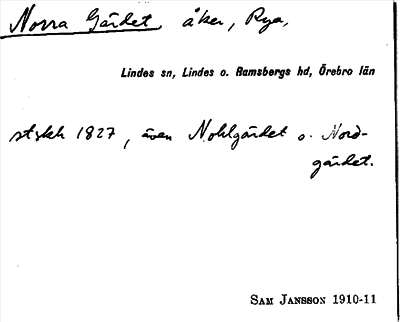 Norra Gärdet åker, Rya,
Lindes sn, Lindes o. Ramsbergs hd, Örebro län
stskh 1827, även Nohlgärdet o. Nord-
gärdet.
SAM JANSSON 1910-11